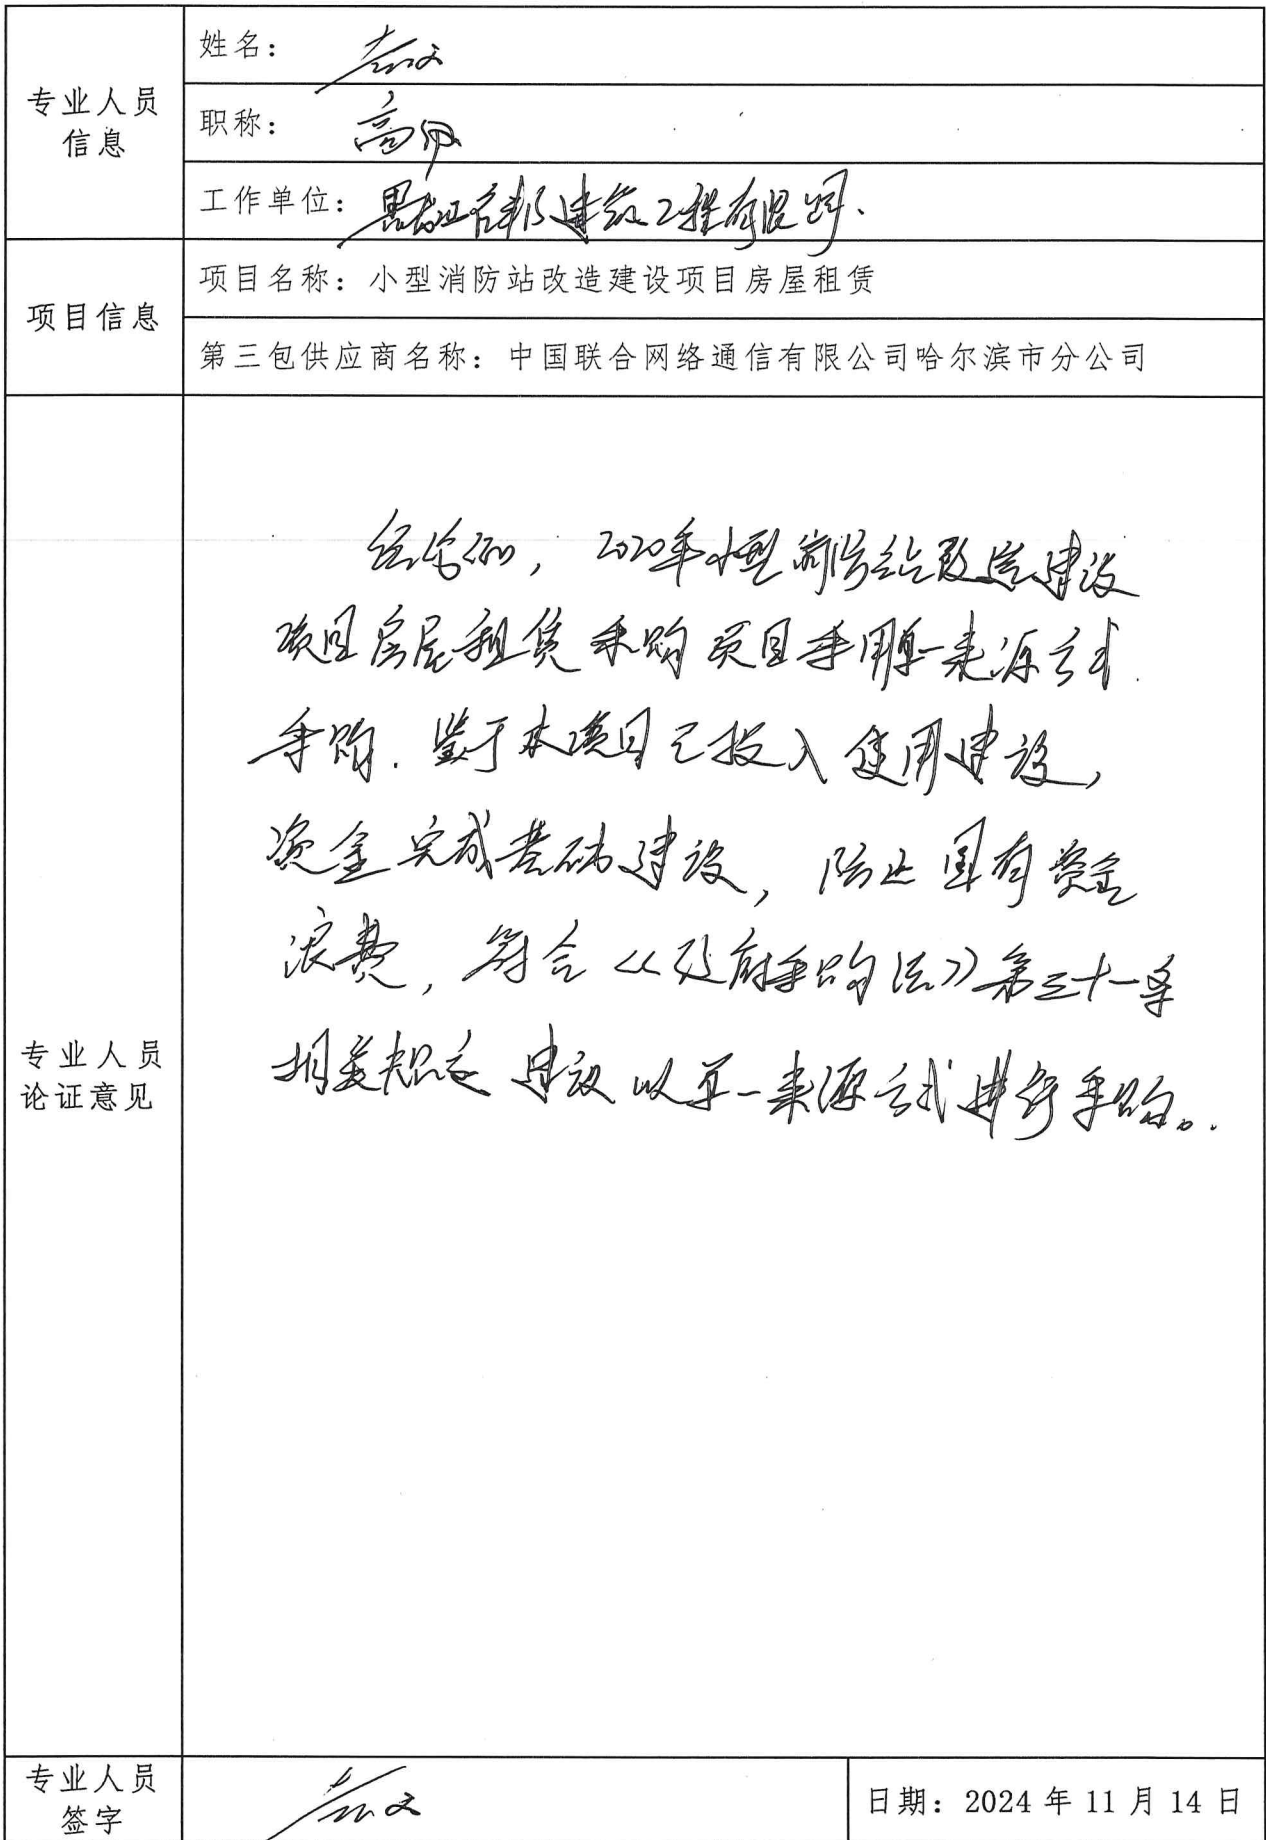 专业人员
信息
姓名：
职称：高级
工作单位：黑龙江省 建筑工程有限公司.
项目信息
项目名称：小型消防站改造建设项目房屋租赁
第三包供应商名称：中国联合网络通信有限公司哈尔滨市分公司
专业人员
论证意见
经论证，2020年小型消防站改造建设
项目房屋租赁采购项目采用单一来源方式
采购. 鉴于本项目已投入使用建设，
资金完成基础建设，防止国有资金
浪费，符合《政府采购法》第三十一条
相关规定 建议以单一来源方式进行采购。
专业人员
签字
日期：2024年11月14日